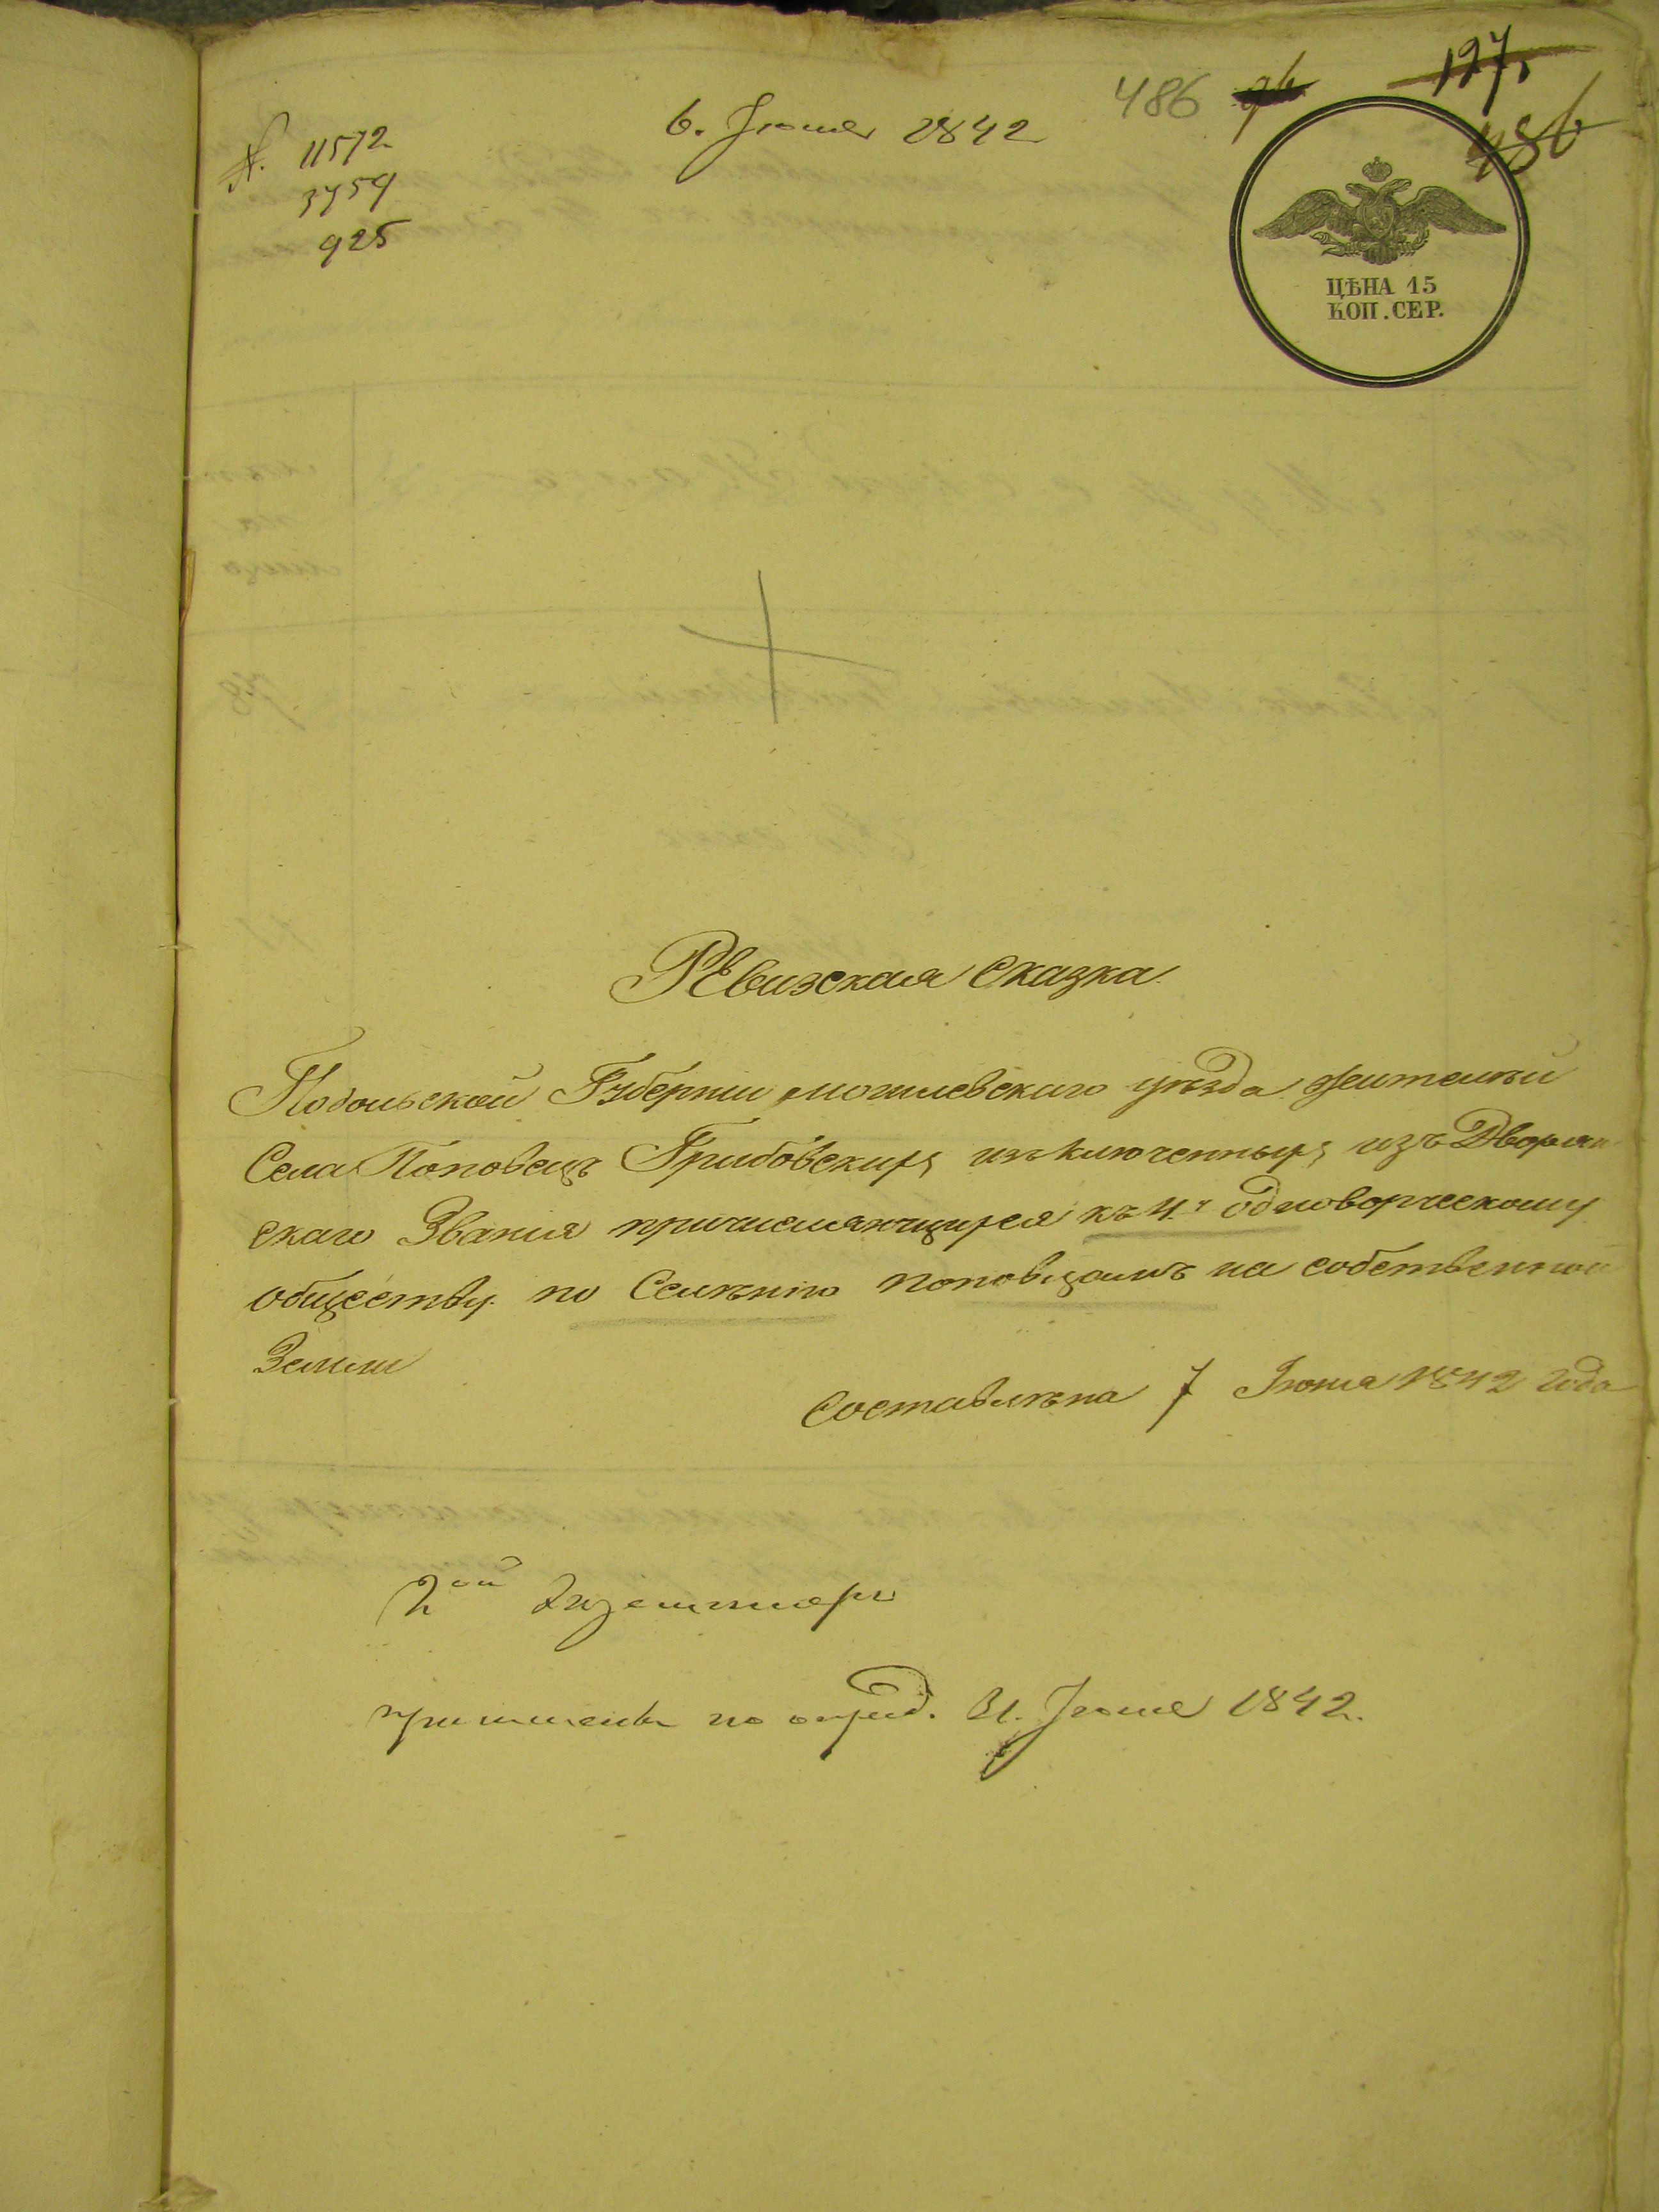 486 96 127.
486
№. 11572
3759
925
6. Июня 1842
ЦѢНА 15
КОП. СЕР.
РЕвизская Сказка.
Подольской Губернии могилевскаго уѣзда жителѣй
Села Поповецъ Грибовскихъ изъключенныхъ изъ Дворян
скаго Звания причисляющихся къ 4.у однодворческому
обществу по Селѣнию поповцамъ на собственной
Земли
Составлѣна 7 Июня 1842 года
2ой Экземпляръ
по опред. 21. Июня 1842.